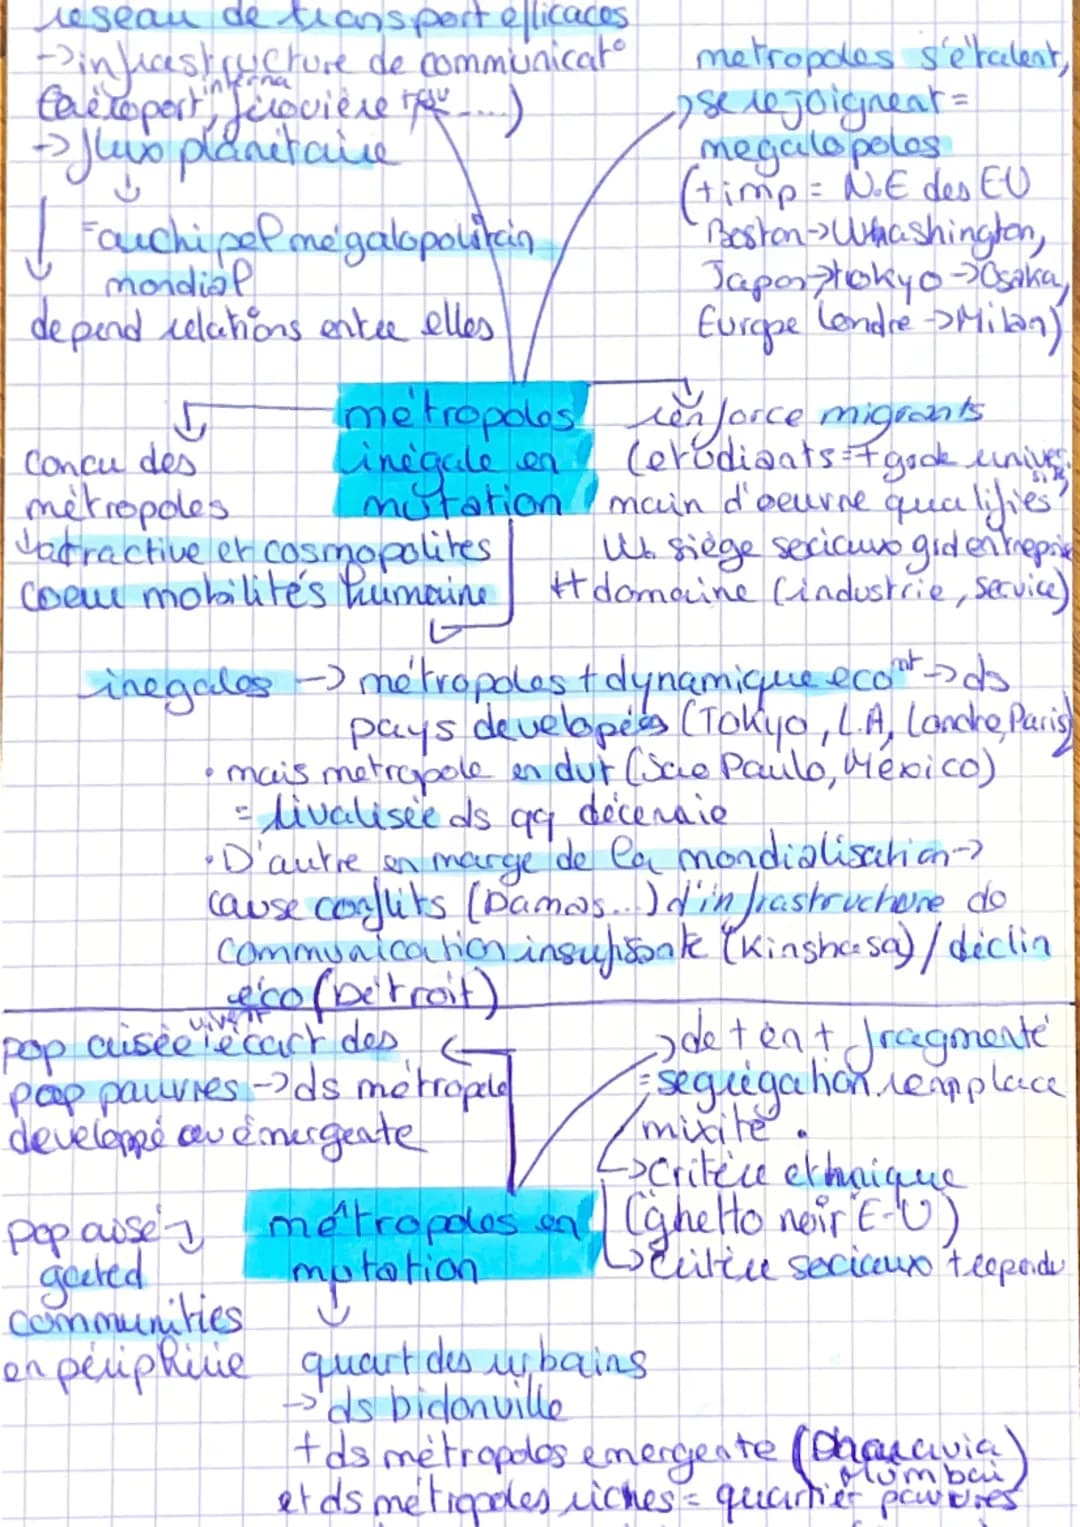 réseau de transport efficaces
->infrastructure de communicat°
(aéroport interna, férovière TGV....)
-> flux planétaire
=archipel mégalopolitain
mondial
depend relations entre elles
metropoles s'étalent,
->se rejoignent=
megalopoles
(+imp= N.E des EU
Boston->Whashington,
Japon->tokyo->Osaka,
Europe Londre->Milan)
métropoles
inégale en
mutation
concu des
métropoles
attractive et cosmopolites
coeur mobilités humaine
renforce migrants
(etudiants=+ grde univers
main d'oeuvre qualifiés
siège sociaux grd entreprise
domaine (industrie, service)
inegales -> métropoles + dynamique eco nt ->ds
pays developées (Tokyo, L.A, Londre, Paris)
• mais metropole en dvt (Sao Paulo, México)
= rivalisée ds qq décenaie
• D'autre en marge de la mondialisation->
cause conflits (Damas...) d'infrastructure de
communication insufisante (Kinshasa)/déclin
éco (Détroit)
pop aisée vivent écart des
pop pauvres ->ds métropole
developpé ou émergente
->de + en + fragmenté
=ségrégation remplace
mixité.
->critère ethnique
(ghetto noir E-U)
->critère sociaux + repondu
métropoles en
mutation
pop aisé
gated
communities
en périphérie
quart des urbains
-> ds bidonville
+ ds métropoles emergente (Dharavia
Mumbai)
et ds métropoles riches = quartier pauvres